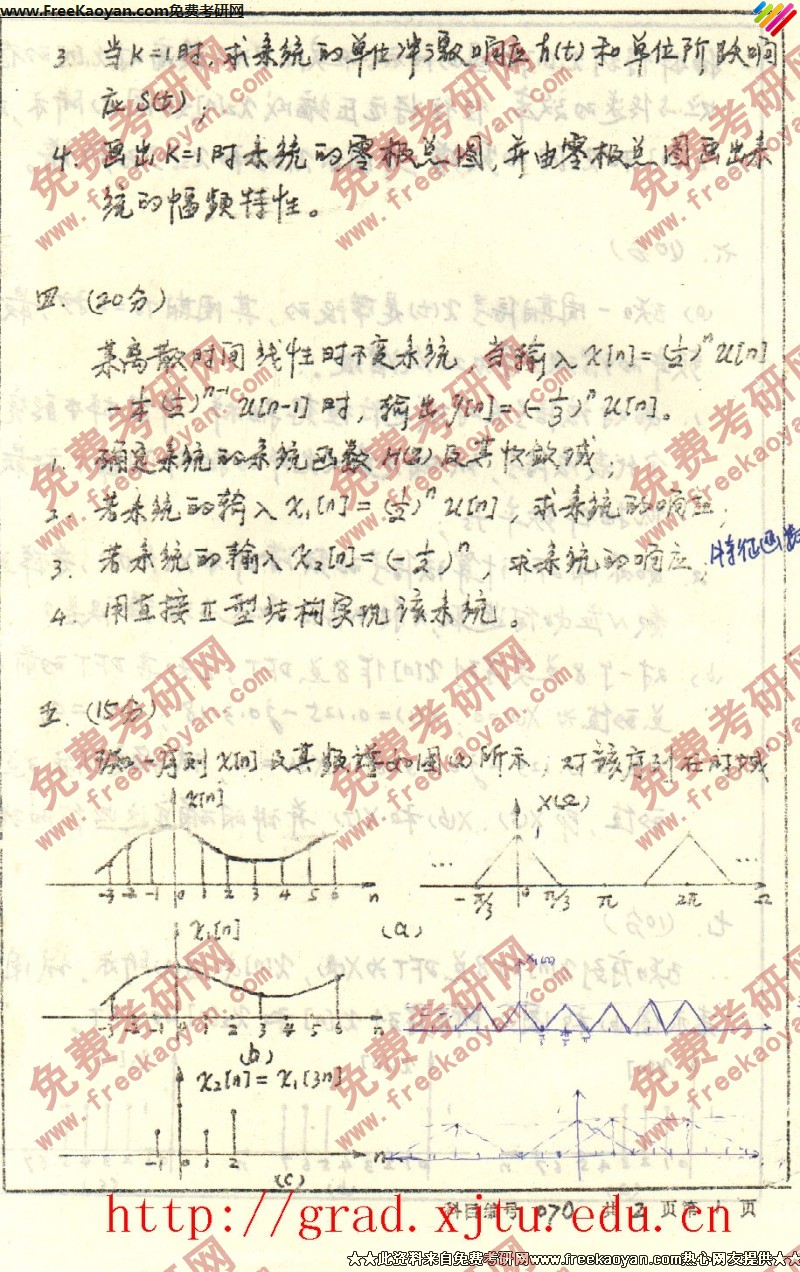 www.FreeKaoyan.com免费考研网
3. 当K=1时,求系统的单位冲激响应h(t)和单位阶跃响
应S(t);
4. 画出K=1时系统的零极点图,并由零极点图画出系
统的幅频特性。
四. (20分)
某离散时间线性时不变系统,当输入x[n]=(1/2)^n u[n]
-1/4(1/2)^{n-1} u[n-1]时,输出y[n]=(-1/3)^n u[n]。
1. 确定系统的系统函数H(z)及其收敛域;
2. 若系统的输入x₁[n]=(1/2)^n u[n],求系统的响应;
3. 若系统的输入x₂[n]=(-1/2)^n,求系统的响应; 特征函数
4. 用直接Ⅱ型结构实现该系统。
五. (15分)
一序列x[n]及其频谱如图(a)所示,对该序列在时域
x[n]
X(Ω)
1
-3 -2 -1 0 1 2 3 4 5 6 n
... -π/3 0 π/3 π 2π Ω ...
(a)
x₁[n]
-3 -2 -1 0 1 2 3 4 5 6 n
(b)
x₂[n]=x₁[3n]
-1 0 1 2 n
(c)
科目编号 070 共 2 页第 1 页
http://grad.xjtu.edu.cn
★★此资料来自免费考研网www.freekaoyan.com热心网友提供★★
免费考研网
www.freekaoyan.com